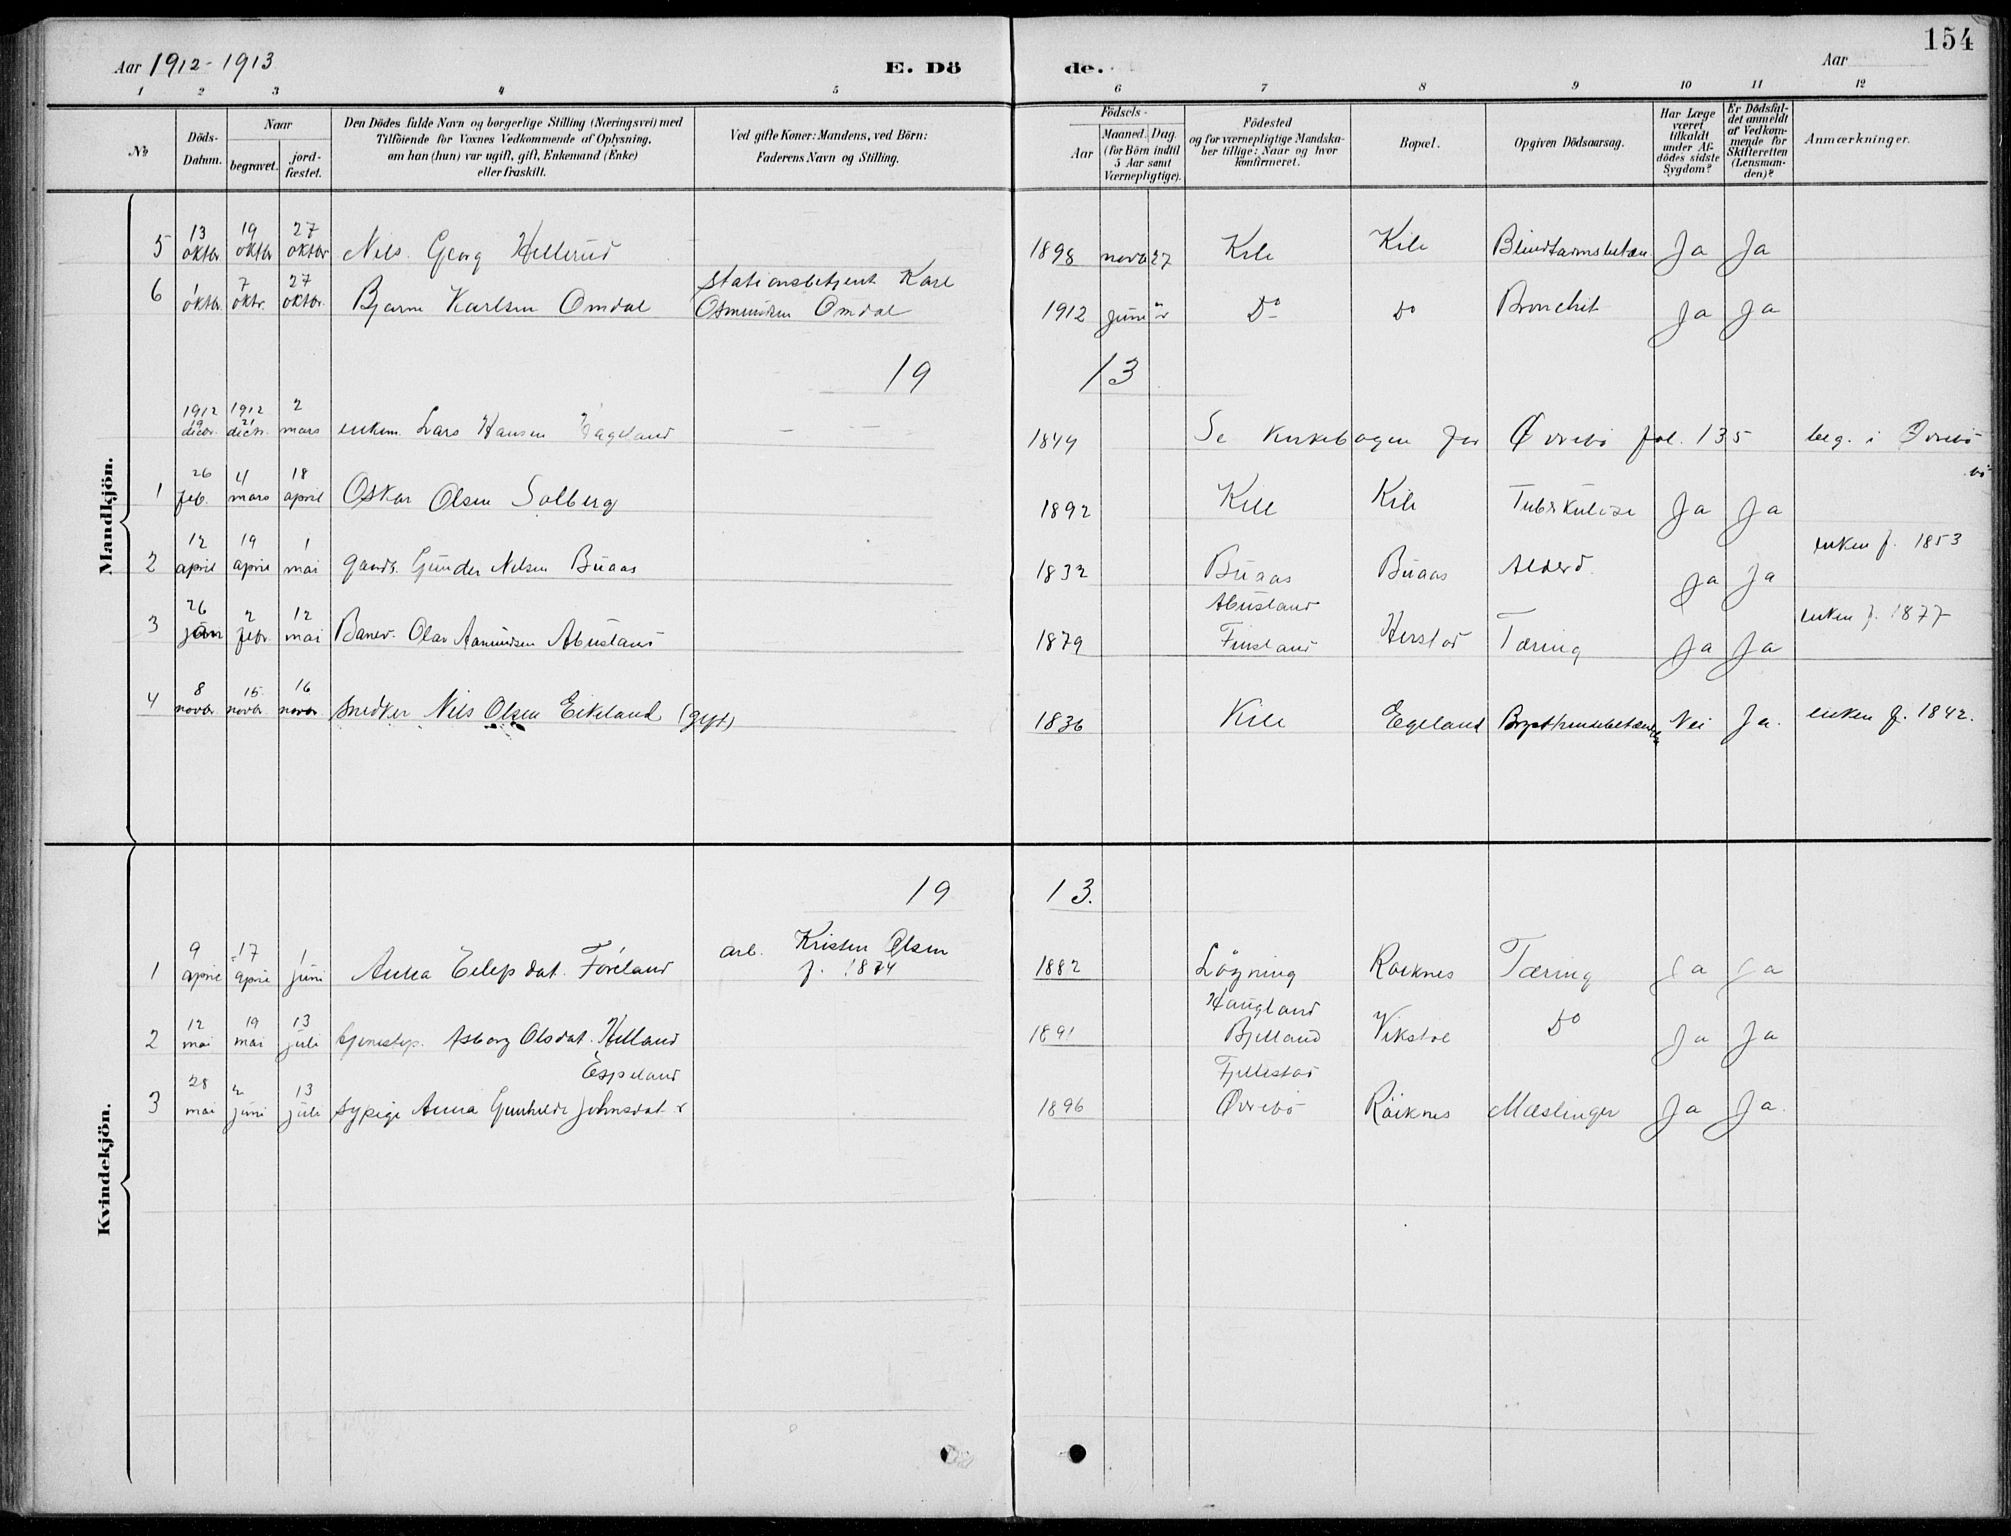 154
Aar 1912-1913 E. Dö de. Aar
1 2 3 4 5 6 7 8 9 10 11 12
No.
Döds-Datum.
Naar
begravet. jord-fæstet.
Den Dödes fulde Navn og borgerlige Stilling (Næringsvei) med
Tilföiende for Voxnes Vedkommende af Oplysning,
om han (hun) var ugift, gift, Enkemand (Enke)
eller fraskilt.
Ved gifte Koner: Mandens, ved Börn:
Faderens Navn og Stilling.
Födsels-
Aar Maaned. Dag.
(for Börn indtil
5 Aar samt
Værnepligtige).
Födested
og for værnepligtige Mandska-
ber tillige: Naar og hvor
konfirmeret.
Bopæl.
Opgiven Dödsaarsag.
Har Læge
været
tilkaldt
under Af-
dödes sidste
Sygdom?
Er Dödsfal-
det anmeldt
af Vedkom-
mende for
Skifteretten
(Lensman-
den)?
Anmærkninger.
Mandkjön.
5 13 oktbr 19 oktbr 27 oktbr Nils Georg Hellerud 1898 novb 27 Kile Kile Blindtarmsbetæn. Ja Ja
6 1 oktbr. 7 oktr. 27 oktbr. Bjarne Karlsen Omdal Stationsbetjent Karl
Osmundsen Omdal 1912 juni Do Do Bronchit Ja Ja
19 13
1912 19 decbr. 1912 21 decbr. 2 mars enkem. Lars Hansen Egeland — — 1849 Se Kirkebogen for Øvrebö fol. 135 beg. i Øvrebö
1 26 feb. 4 mars 18 april Oskar Olsen Solberg 1892 Kile Kile Tuberkulose Ja Ja
2 12 april 19 april 1 mai gaards. Gunder Nilsen Buaas 1832 Buaas Buaas Alderd. Ja Ja enken f. 1853
3 26 jan 2 febr. 12 mai Banev. Olav Aamundsen Abusland 1879 Abusland
Finsland Herstad Tæring Ja Ja enken f. 1877
4 8 novbr 15 novbr. 16 novbr snedker Nils Olsen Eikeland (gift) 1836 Kile Egeland Brysthindebetændelse Nei Ja. enken f. 1842.
Kvindekjön.
19 13.
1 9 april 17 april 1 juni Anna Eilefsdat. Föreland arb. Kristen Olsen
f. 1874 1882 Lögning Röiknes Tæring Ja Ja
2 12 mai 19 mai 13 juli tjenestep. Asborg Olsdat. Helland 1891 Haugland
Bjelland Vikstöl Do Ja Ja
3 28 mai 2 juni 13 juli sypige Anna Gunhilde Johnsdat. Espeland 1896 Fjellestad
Øvrebö Röiknes Mæslinger Ja Ja.